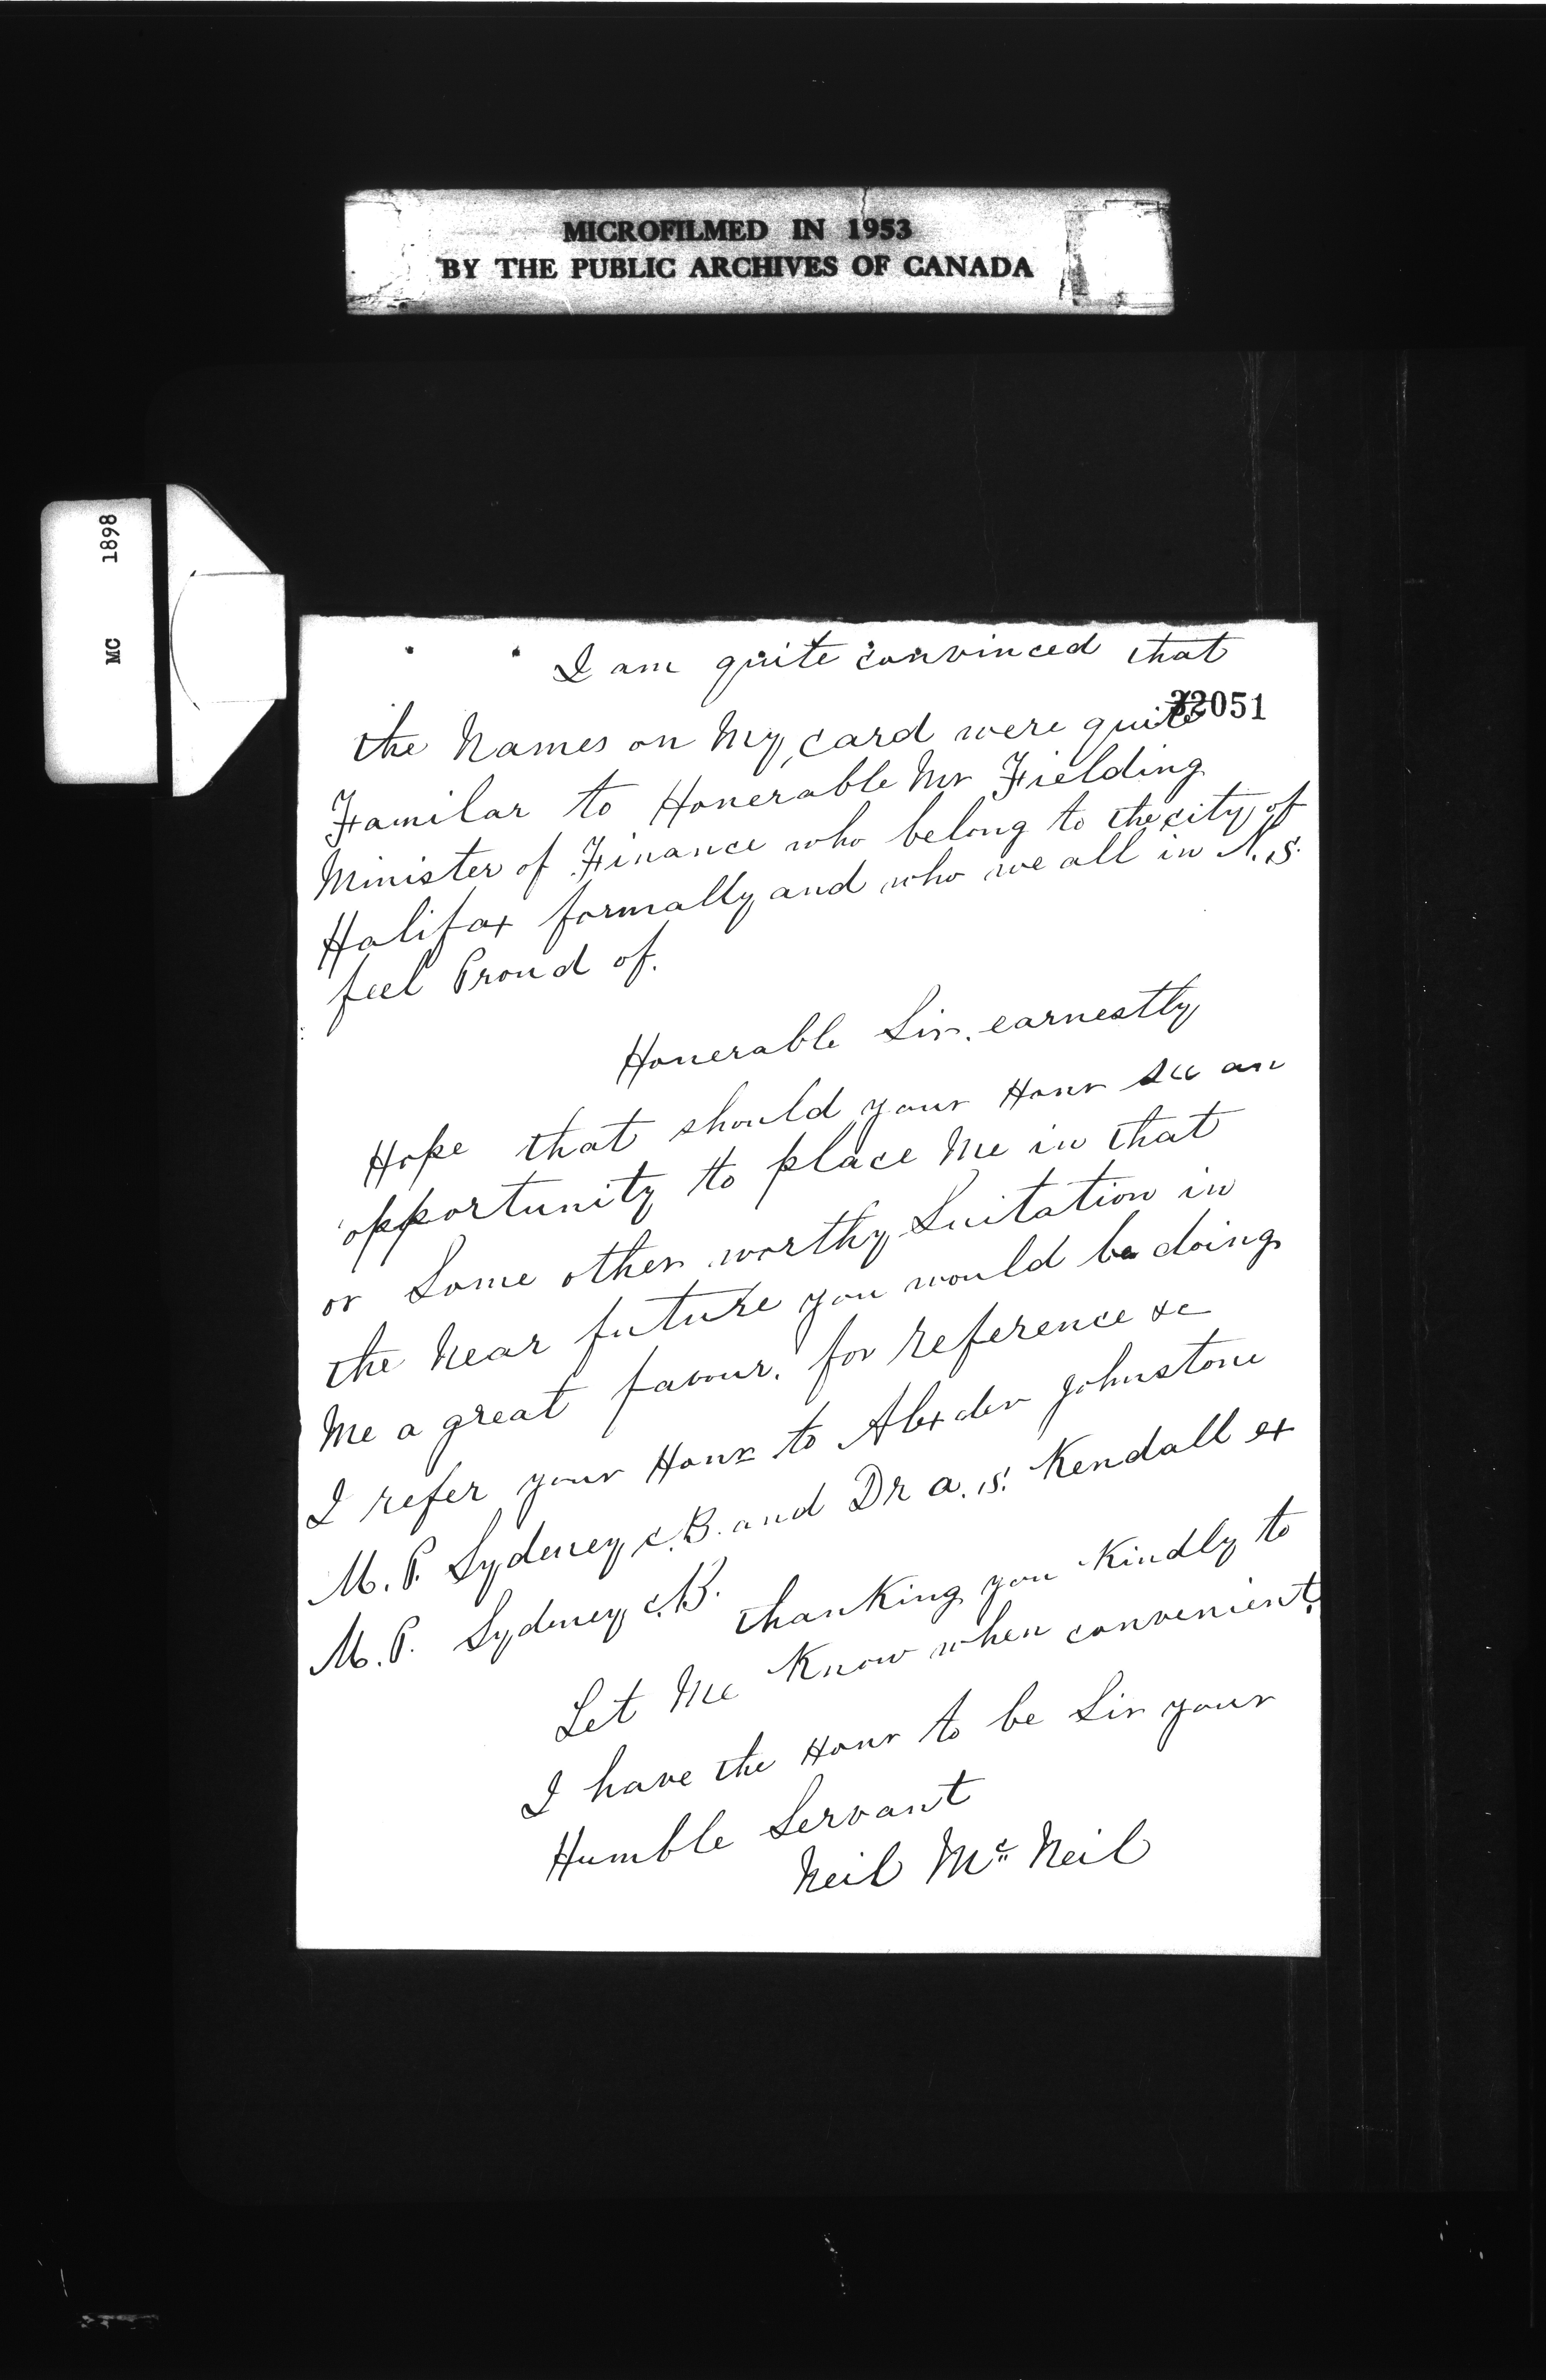 MICROFILMED IN 1953
BY THE PUBLIC ARCHIVES OF CANADA
MC 1898
I am quite convinced that
32051
the Names on My card were quite
Familar to Honerable Mr Fielding
Minister of Finance who belong to the city of
Halifax formally and who we all in N.S.
feel Proud of.
Honerable Sir. earnestly
Hope that should your Honr see an
opportunity to place Me in that
or Some other worthy Suitation in
the Near future you would be doing
Me a great favour. for reference &c
I refer your Honr to Alexder Johnstone
M.P. Sydeney C.B. and Dr A.S. Kendall ex
M.P. Sydney C.B. thanKing you Kindly to
Let Me Know when convenient.
I have the Honr to be Sir your
Humble Servant
Neil Mc Neil